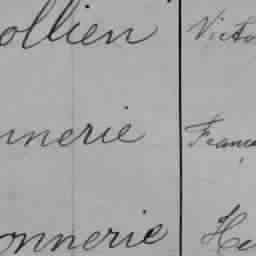 ollien Victo
nnerie Franç
onnerie He